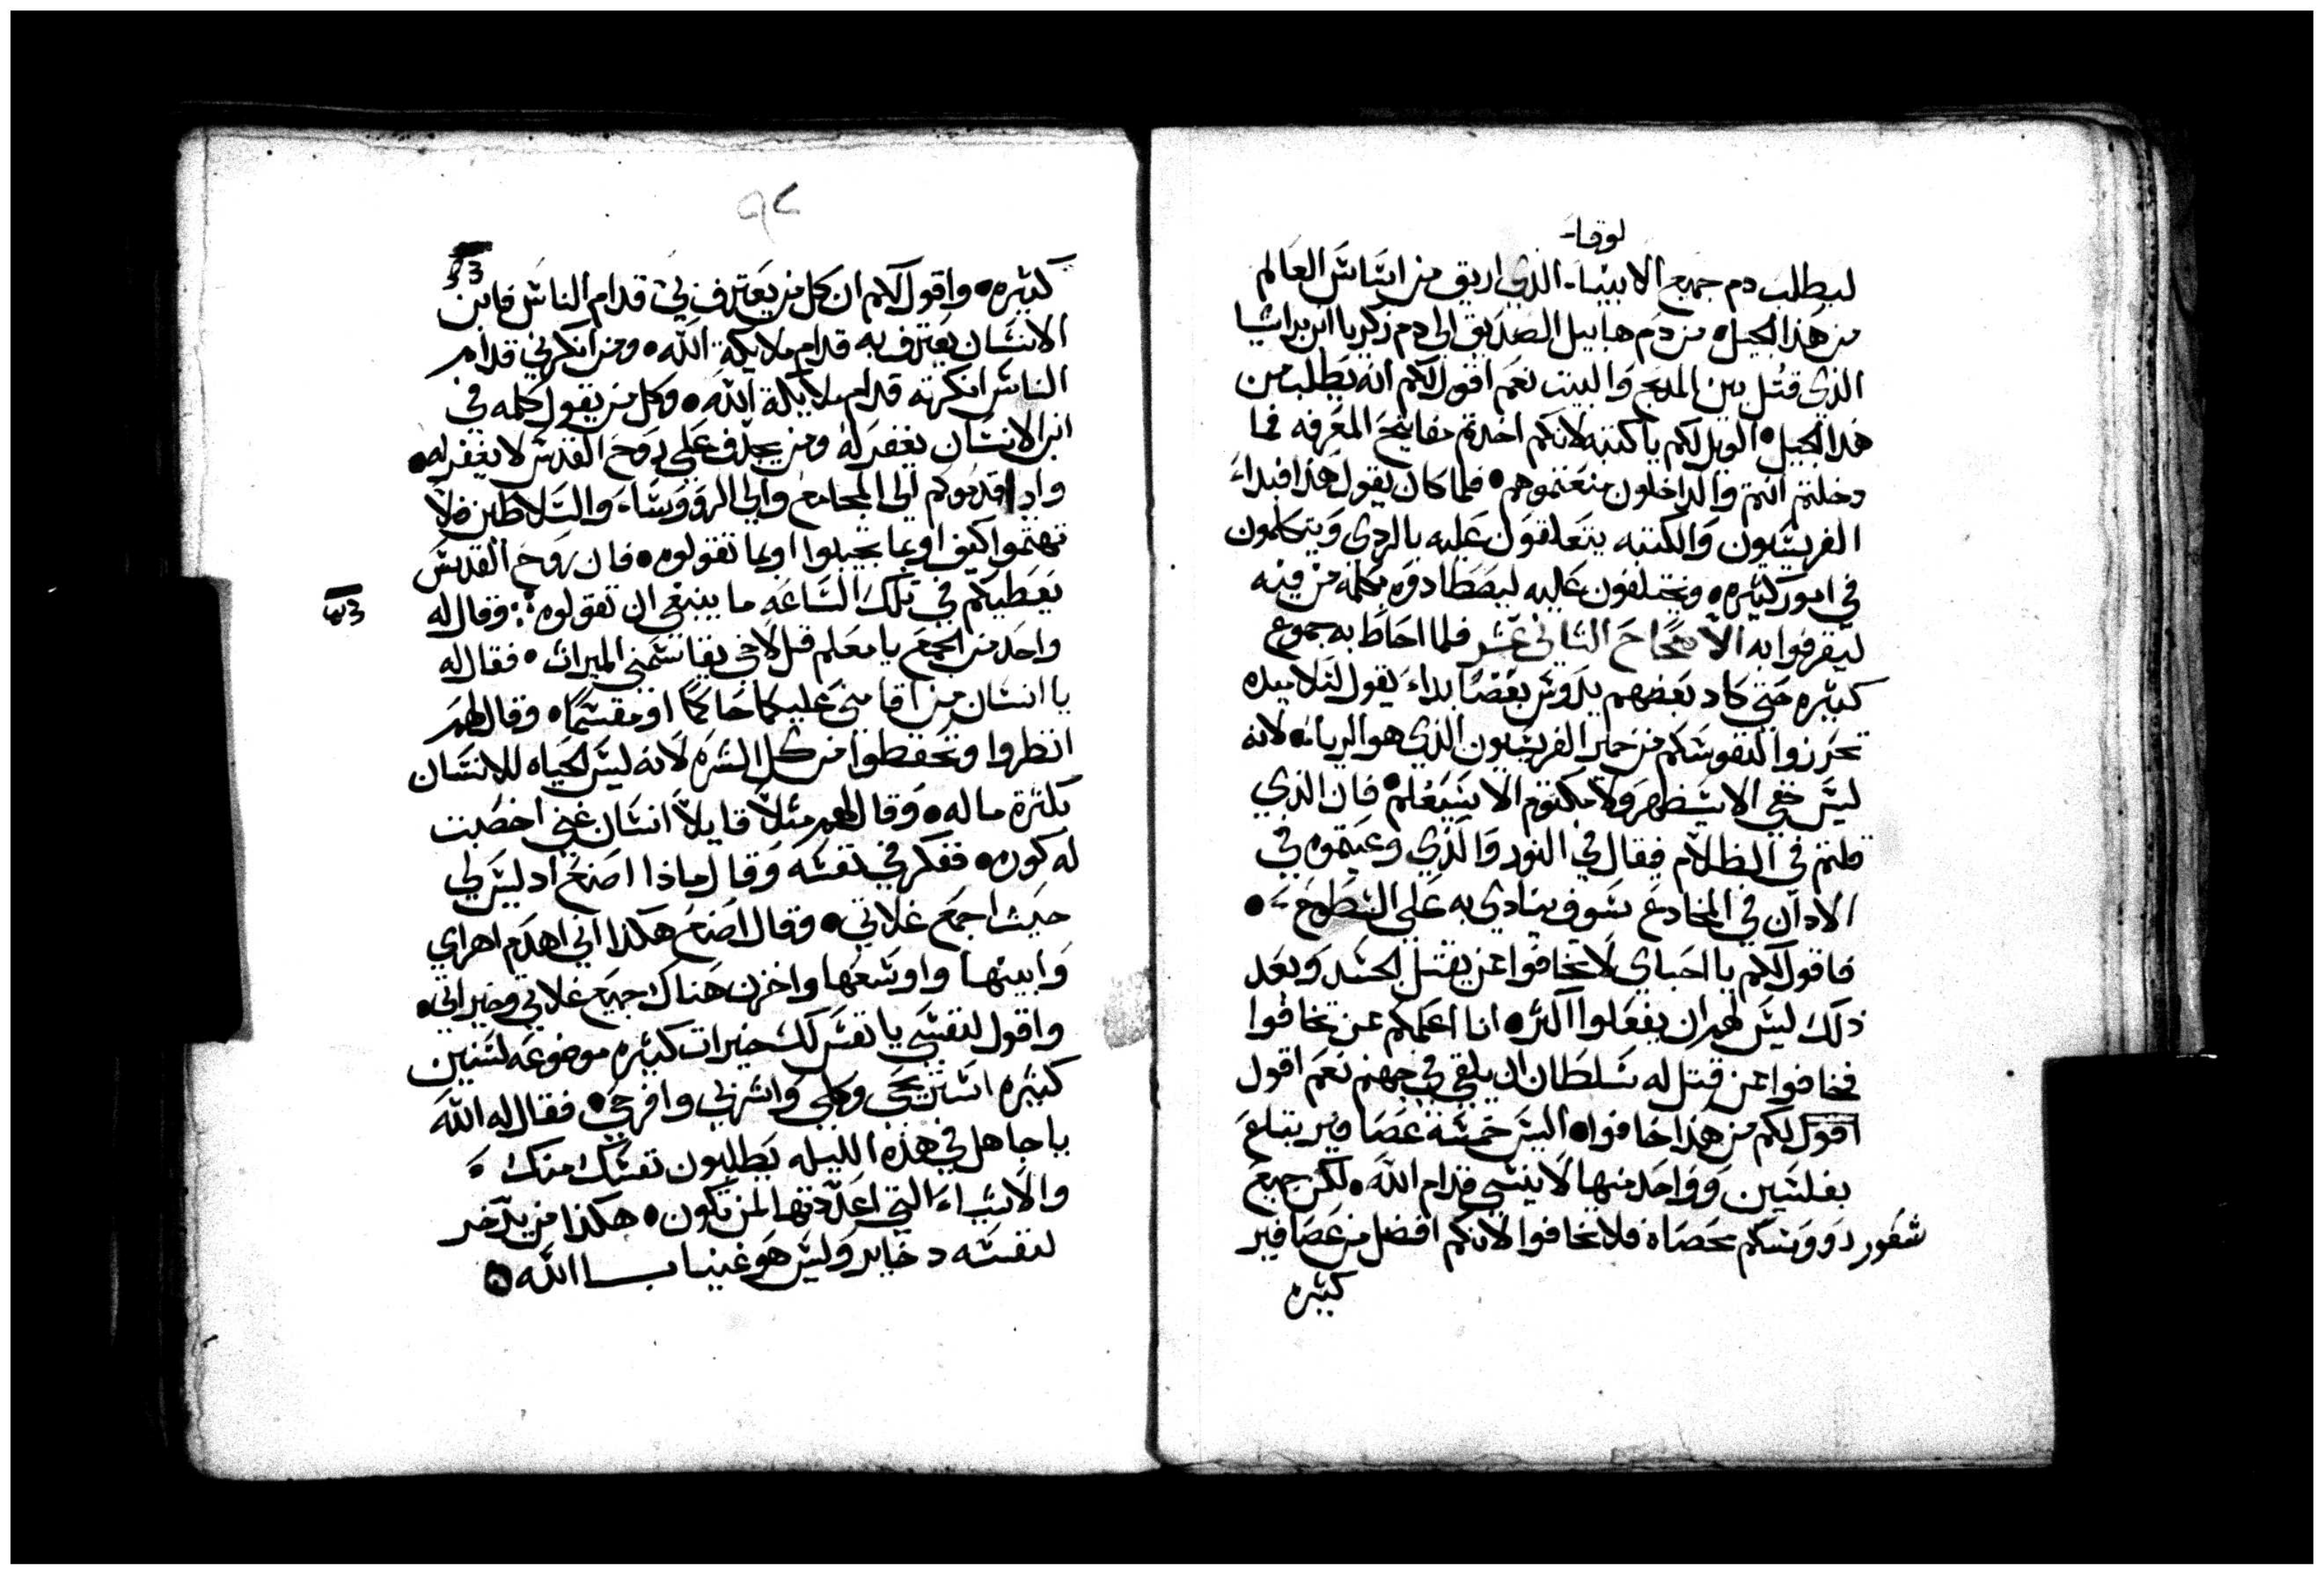 لوقا
ليطلب دم جميع الانبيا الذي اريق من اساس العالم
من هذا الجيل من دم هابيل الصديق الى دم زكريا ابن براشيا
الذي قتل بين المدبح والبيت نعم اقول لكم انه يطلب من
هدا الجيل الويل لكم ياكتبه لانكم اخدتم مفاتيح المعرفه فما
دخلتم انتم والداخلون منعتموهم فلما كان يقول هذا فبداء
الفريسيون والكتبه يتعلقون عليه بالردى ويتكلمون
في امور كثيره ويحتلفون عليه ليصطادوه بكلمه من فيه
ليقرفوا به الاصحاح الثاني عشر فلما احاط به جموع
كثيره حتى كاد بعضهم يدوس بعضا بداء يقول لتلاميده
تحرزوا لنفوسكم من خمير الفريسيون الذي هو الرياء لانه
ليس خفي الا سيظهر ولا مكتوم الا سيعلم فان الذي
قلتم في الظلام فيقال في النور والذي وعيتموه في
الادان في المخادع سوف ينادي به على السطوح
فاقول لكم يا احباي لا تخافوا عن يقتل الجسد وبعد
ذلك ليس لهم ان يفعلوا اكثر انا اعلمكم عن تخافوا
فخافوا عن قتل له سلطان ان يلقي في جهنم نعم اقول
اقول لكم من هذا خافوا اليس خمسه عصافير يتباع
بفلسين وواحد منها لا ينسى قدام الله لكن جميع
شعور دووسكم محصاه فلا تخافوا لانكم افضل من عصافير
كثيره
٩٢
كثيره واقول لكم ان كل من يعترف بي قدام الناس فابن
الانسان يعترف به قدام ملايكة الله ومن انكرني قدام
الناس انكرته قدام ملايكة الله وكل من يقول كلمه في
ابن الانسان يغفر له ومن يجدف على روح القدس لا يغفر له
واداقدموكم الى المجامع والي الرووسا والسلاطين فلا
تهتموا كيف اوبما تجيبوا اوبما تقولون فان روح القدس
يعطيكم في تلك الساعه ما ينبغي ان تقولوه وقال له
واحد من الجمع يا معلم قل لاخي يقاسمني الميراث فقال له
يا انسان من اقامني عليكما حاكما او مقسما وقال لهم
انظروا وتحفظوا من كل الشره لانه ليس الحياه للانسان
بكثرة ماله وقال لهم مثلا قايلا انسان غني اخصبت
له كوره ففكر في نفسه وقال ماذا اصنع اد ليس لي
حيث اجمع غلاتي وقال اصنع هكذا اني اهدم اهراي
وابنيها واوسعها واخزن هناك جميع غلاتي وخيراتي
واقول لنفسي يا نفس لك خيرات كثيره موضوعه لسنين
كثيره استريحي وكلي واشربي وافرحي فقال له الله
يا جاهل في هذه الليله يطلبون نفسك منك
والاشياء التي اعددتها لمن تكون هكذا من يدخر
لنفسه دخاير وليس هو غنيا بـا الله